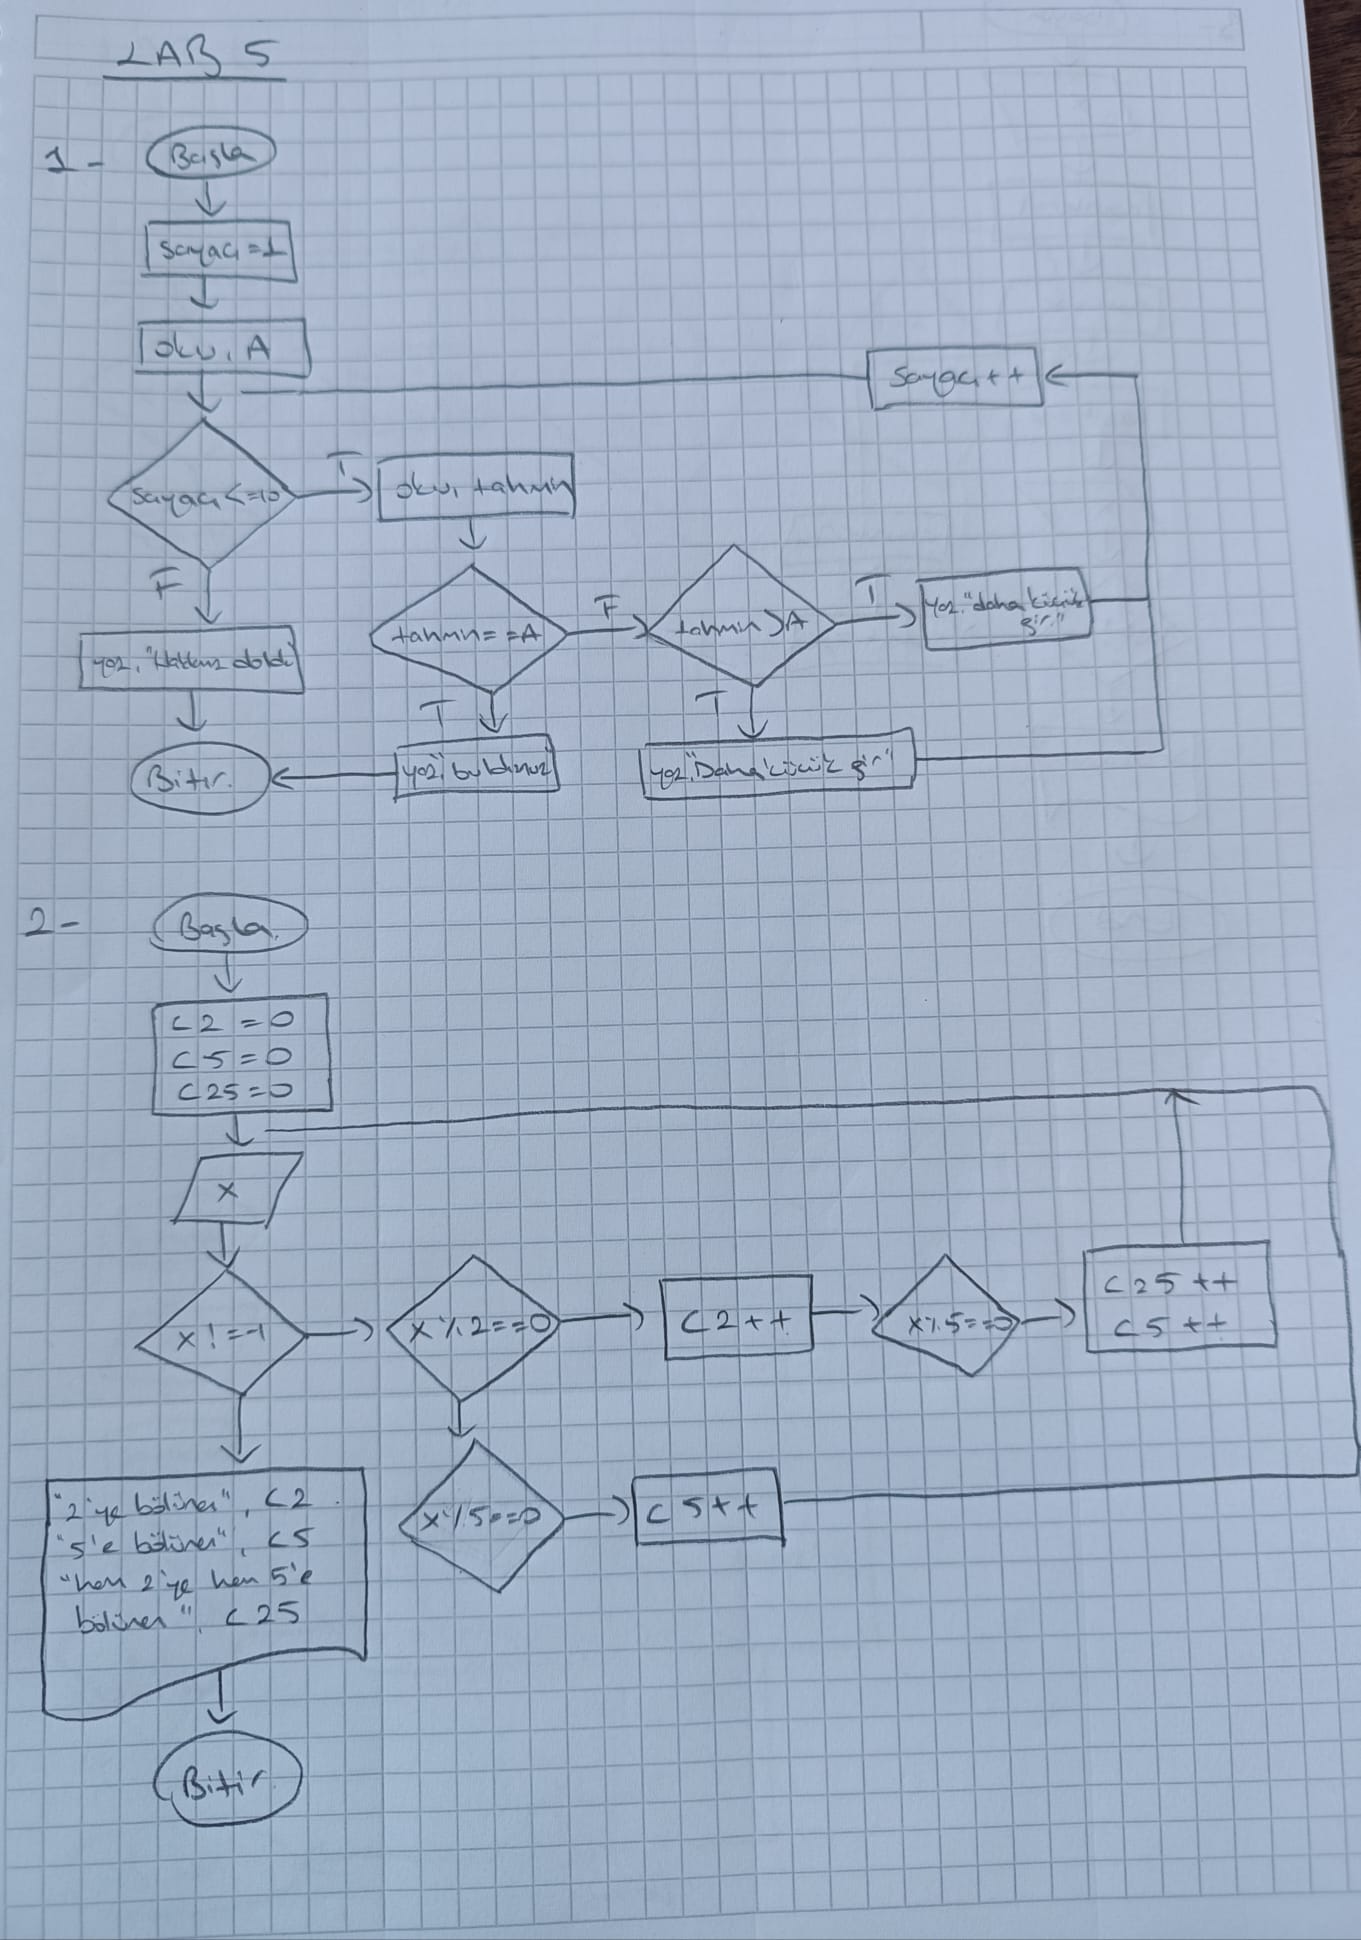 LAB 5
1-
Başla
Sayacı=1
oku, A
Sayacı++
Sayacı<=10
T
oku, tahmin
F
tahmin==A
F
tahmin>A
T
yaz, "daha küçük
gir."
yaz, "Hakkınız doldu"
T
T
Bitir.
yaz, "buldunuz"
yaz, "Daha küçük gir"
2-
Başla.
C2 = 0
C5 = 0
C25 = 0
x
x != -1
x % 2 == 0
C2++
x%5==0
C25++
C5++
"2'ye bölünen", C2
"5'e bölünen", C5
"hem 2'ye hem 5'e
bölünen", C25
x%5==0
C5++
Bitir